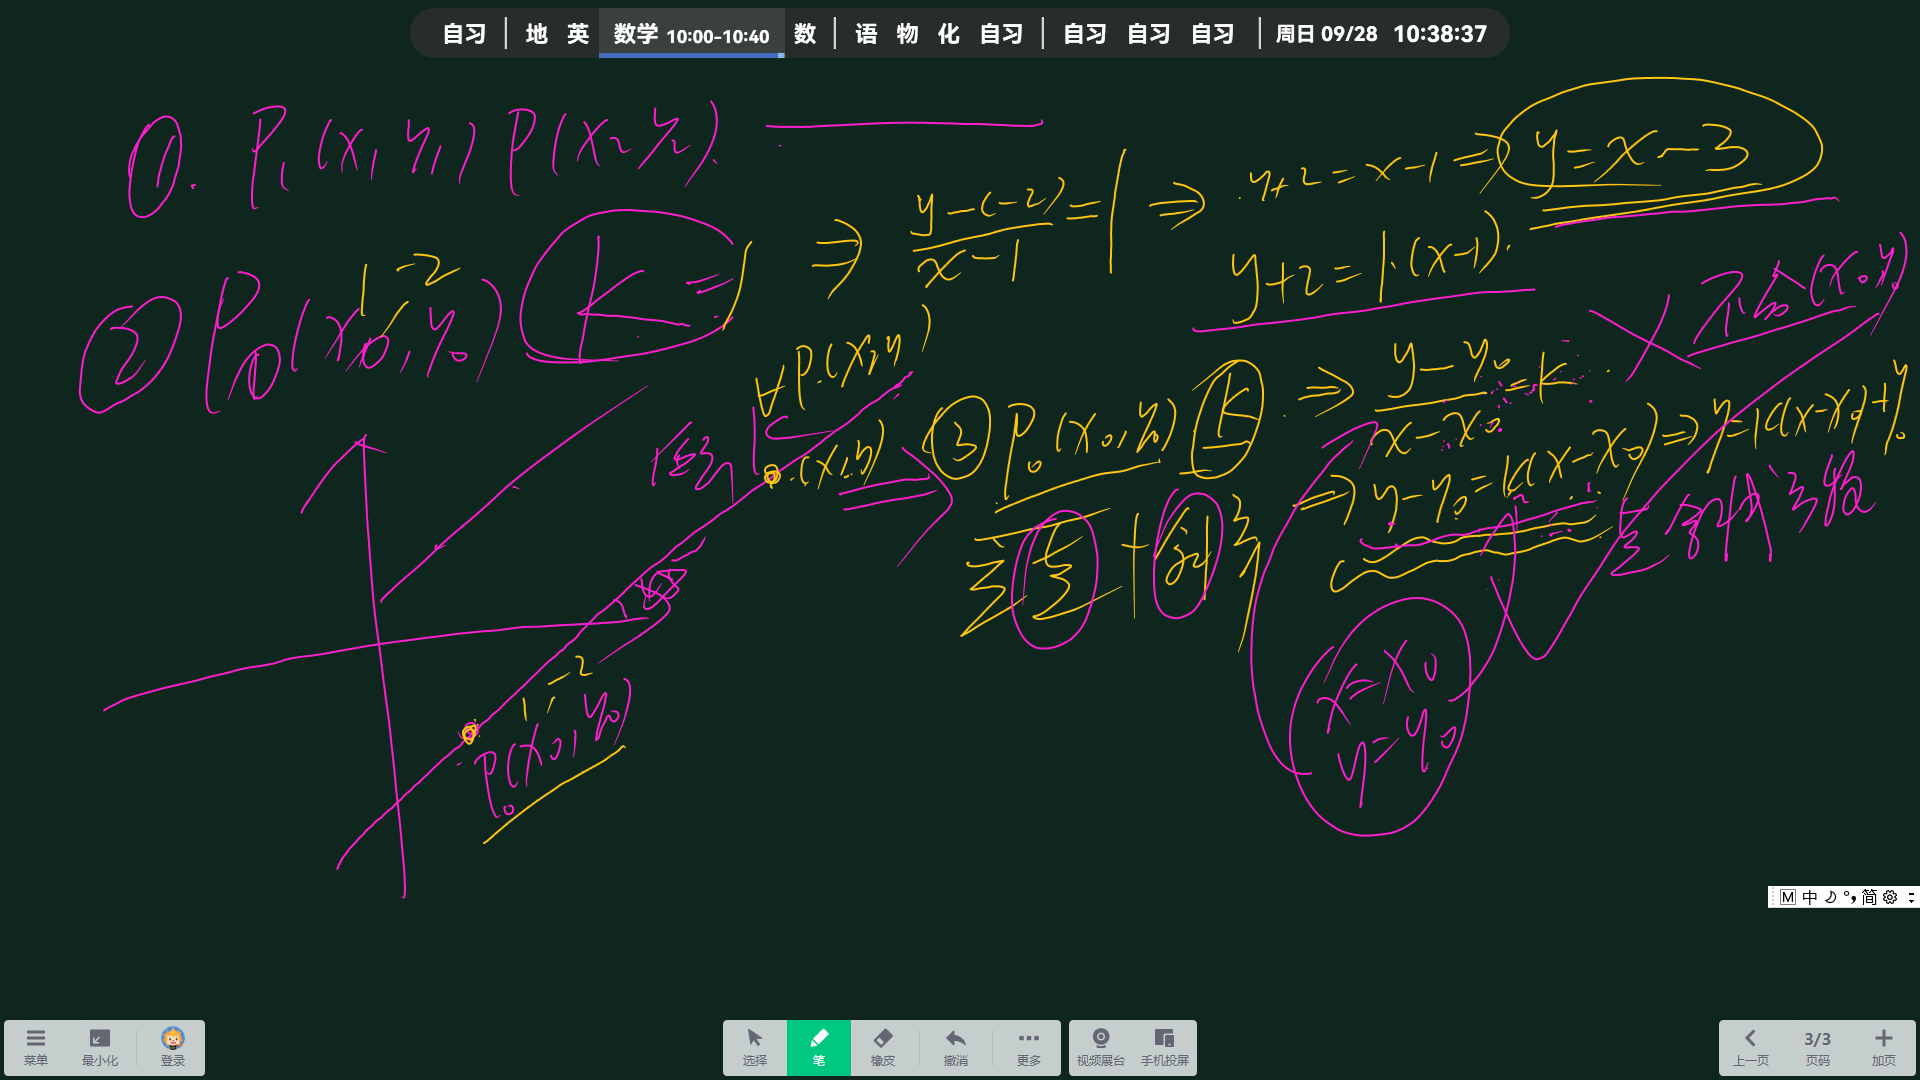 自习 | 地 英 数学 10:00-10:40 数 | 语 物 化 自习 | 自习 自习 自习 | 周日 09/28 10:38:37
①. P₁(x₁ y₁) P(x₂ y₂).
② P₀(x₀, y₀) K=1
1 -2
⇒ y-(-2)/x-1 = 1 ⇒ y+2=x-1 ⇒ y=x-3
y+2=1·(x-1).
不含(x₀,y₀)
∀P.(x,y)
任意
(x,y)
③ P₀(x₀,y₀) K ⇒ y-y₀/x-x₀ = K
⇒ y-y₀=k(x-x₀) ⇒ y=k(x-x₀)+y₀
+ 斜
x=x₀
y=y₀
1,-2
P₀(x₀,y₀)
M 中 简
菜单 最小化 登录
选择 笔 橡皮 撤消 更多
视频展台 手机投屏
上一页 3/3 页码 加页